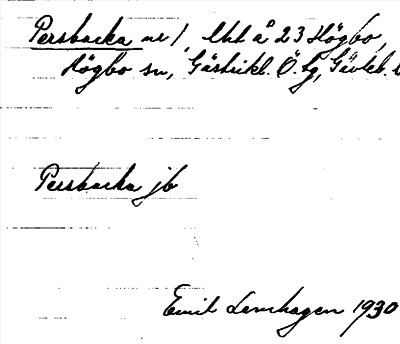 Persbacka nr 1, lht å 23 Högbo,
Högbo sn, Gästrikl. Ö. tg, Gävleb. l
Persbacka jb
Emil Lenshagen 1930